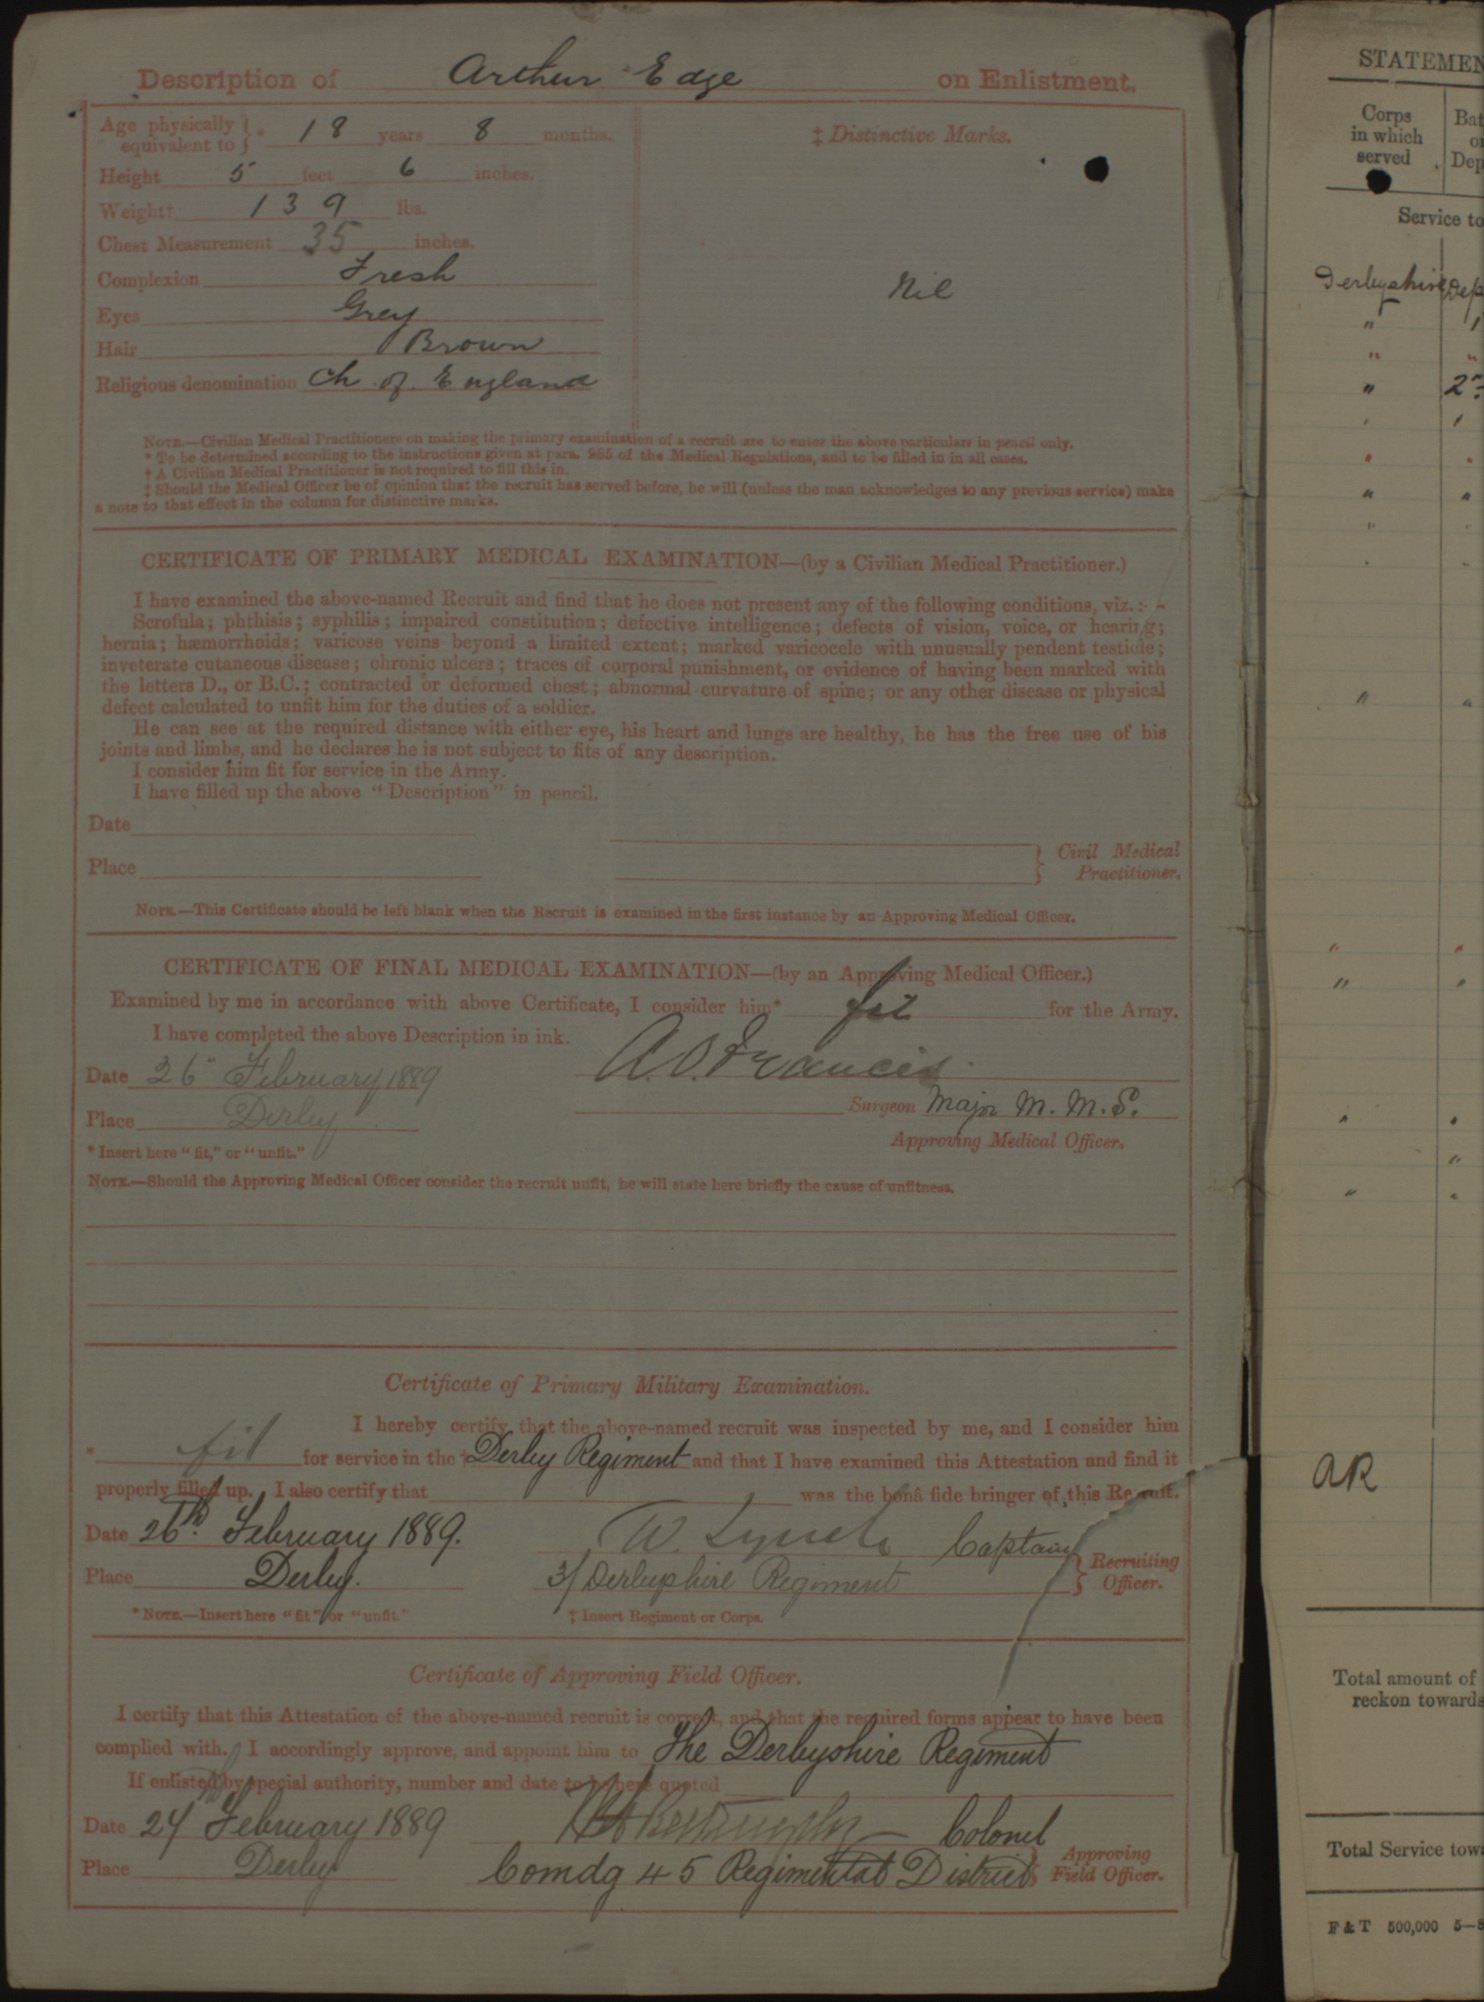 Description of Arthur Edge on Enlistment.
Age physically equivalent to * 18 years 8 months.
Height 5 feet 6 inches.
Weight† 139 lbs.
Chest Measurement 35 inches.
Complexion Fresh
Eyes Grey
Hair Brown
Religious denomination Ch. of. England
‡ Distinctive Marks.
Nil
NOTE.—Civilian Medical Practitioners on making the primary examination of a recruit are to enter the above particulars in pencil only.
* To be determined according to the instructions given at para. 985 of the Medical Regulations, and to be filled in in all cases.
† A Civilian Medical Practitioner is not required to fill this in.
‡ Should the Medical Officer be of opinion that the recruit has served before, he will (unless the man acknowledges to any previous service) make
a note to that effect in the column for distinctive marks.
CERTIFICATE OF PRIMARY MEDICAL EXAMINATION—(by a Civilian Medical Practitioner.)
I have examined the above-named Recruit and find that he does not present any of the following conditions, viz.:-
Scrofula; phthisis; syphilis; impaired constitution; defective intelligence; defects of vision, voice, or hearing;
hernia; hæmorrhoids; varicose veins beyond a limited extent; marked varicocele with unusually pendent testicle;
inveterate cutaneous disease; chronic ulcers; traces of corporal punishment, or evidence of having been marked with
the letters D., or B.C.; contracted or deformed chest; abnormal curvature of spine; or any other disease or physical
defect calculated to unfit him for the duties of a soldier.
He can see at the required distance with either eye, his heart and lungs are healthy, he has the free use of his
joints and limbs, and he declares he is not subject to fits of any description.
I consider him fit for service in the Army.
I have filled up the above "Description" in pencil.
Date
Place
Civil Medical Practitioner.
NOTE.—This Certificate should be left blank when the Recruit is examined in the first instance by an Approving Medical Officer.
CERTIFICATE OF FINAL MEDICAL EXAMINATION—(by an Approving Medical Officer.)
Examined by me in accordance with above Certificate, I consider him* fit for the Army.
I have completed the above Description in ink.
Date 26" February 1889 A.O. Francis
Place Derby Surgeon Major M. M. S.
Approving Medical Officer.
* Insert here "fit," or "unfit."
NOTE.—Should the Approving Medical Officer consider the recruit unfit, he will state here briefly the cause of unfitness.
Certificate of Primary Military Examination.
I hereby certify that the above-named recruit was inspected by me, and I consider him
* fit for service in the ‡ Derby Regiment and that I have examined this Attestation and find it
properly filled up. I also certify that was the bonâ fide bringer of this Recruit.
Date 26th. February 1889. W. Lynch Captain
Place Derby. 3/Derbyshire Regiment Recruiting Officer.
* NOTE.—Insert here "fit" or "unfit."
‡ Insert Regiment or Corps.
Certificate of Approving Field Officer.
I certify that this Attestation of the above-named recruit is correct, and that the required forms appear to have been
complied with. I accordingly approve, and appoint him to The Derbyshire Regiment
If enlisted by special authority, number and date to be here quoted
Date 27th February 1889 Colonel
Place Derby Comdg 45 Regimental District Approving Field Officer.
STATEMEN
Corps in which served
Bat
o
Dep
Service to
Derbyshire Dep
" 1
" "
" 2n
" 1
" "
" "
" "
" "
" "
" "
" "
" "
"
" "
AR
Total amount of
reckon towards
Total Service tow
F & T 500,000 5—8